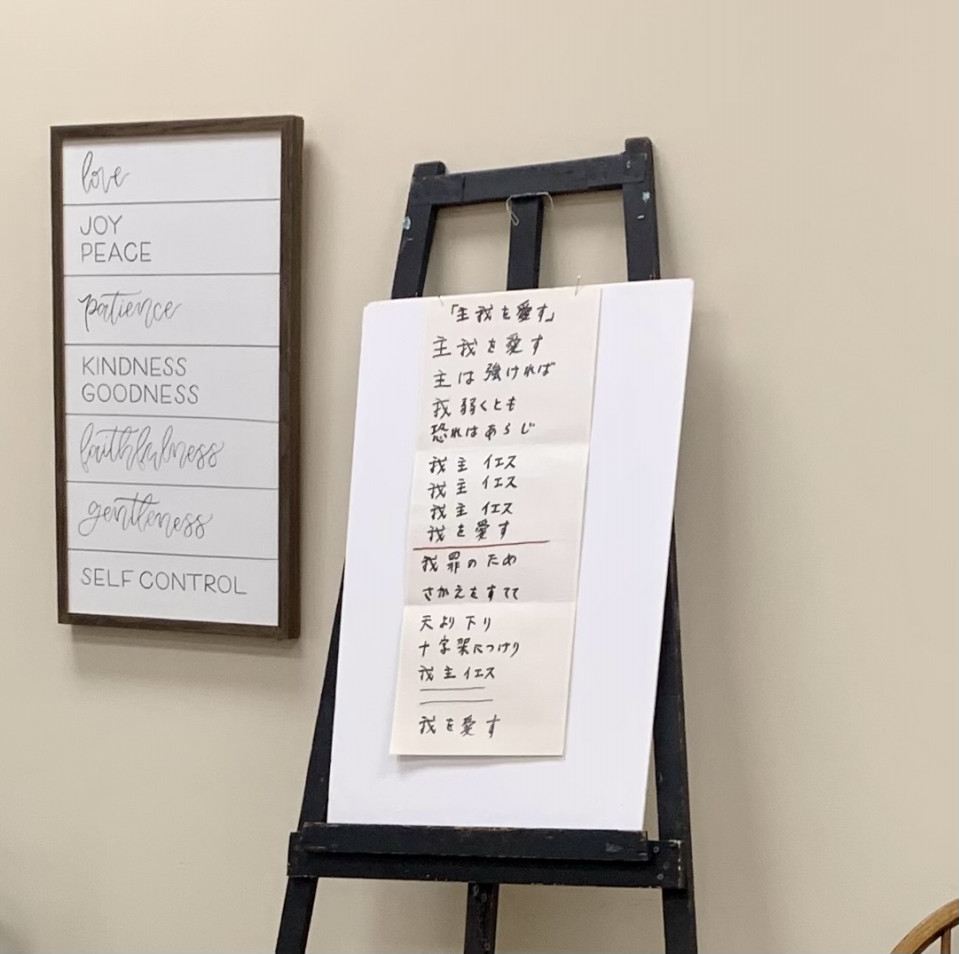 love
JOY
PEACE
patience
KINDNESS
GOODNESS
faithfulness
gentleness
SELF CONTROL
「主我を愛す」
主我を愛す
主は強ければ
我弱くとも
恐れはあらじ
我主イエス
我主イエス
我主イエス
我を愛す
我罪のため
さかえをすてて
天より下り
十字架につけり
我主イエス
我を愛す